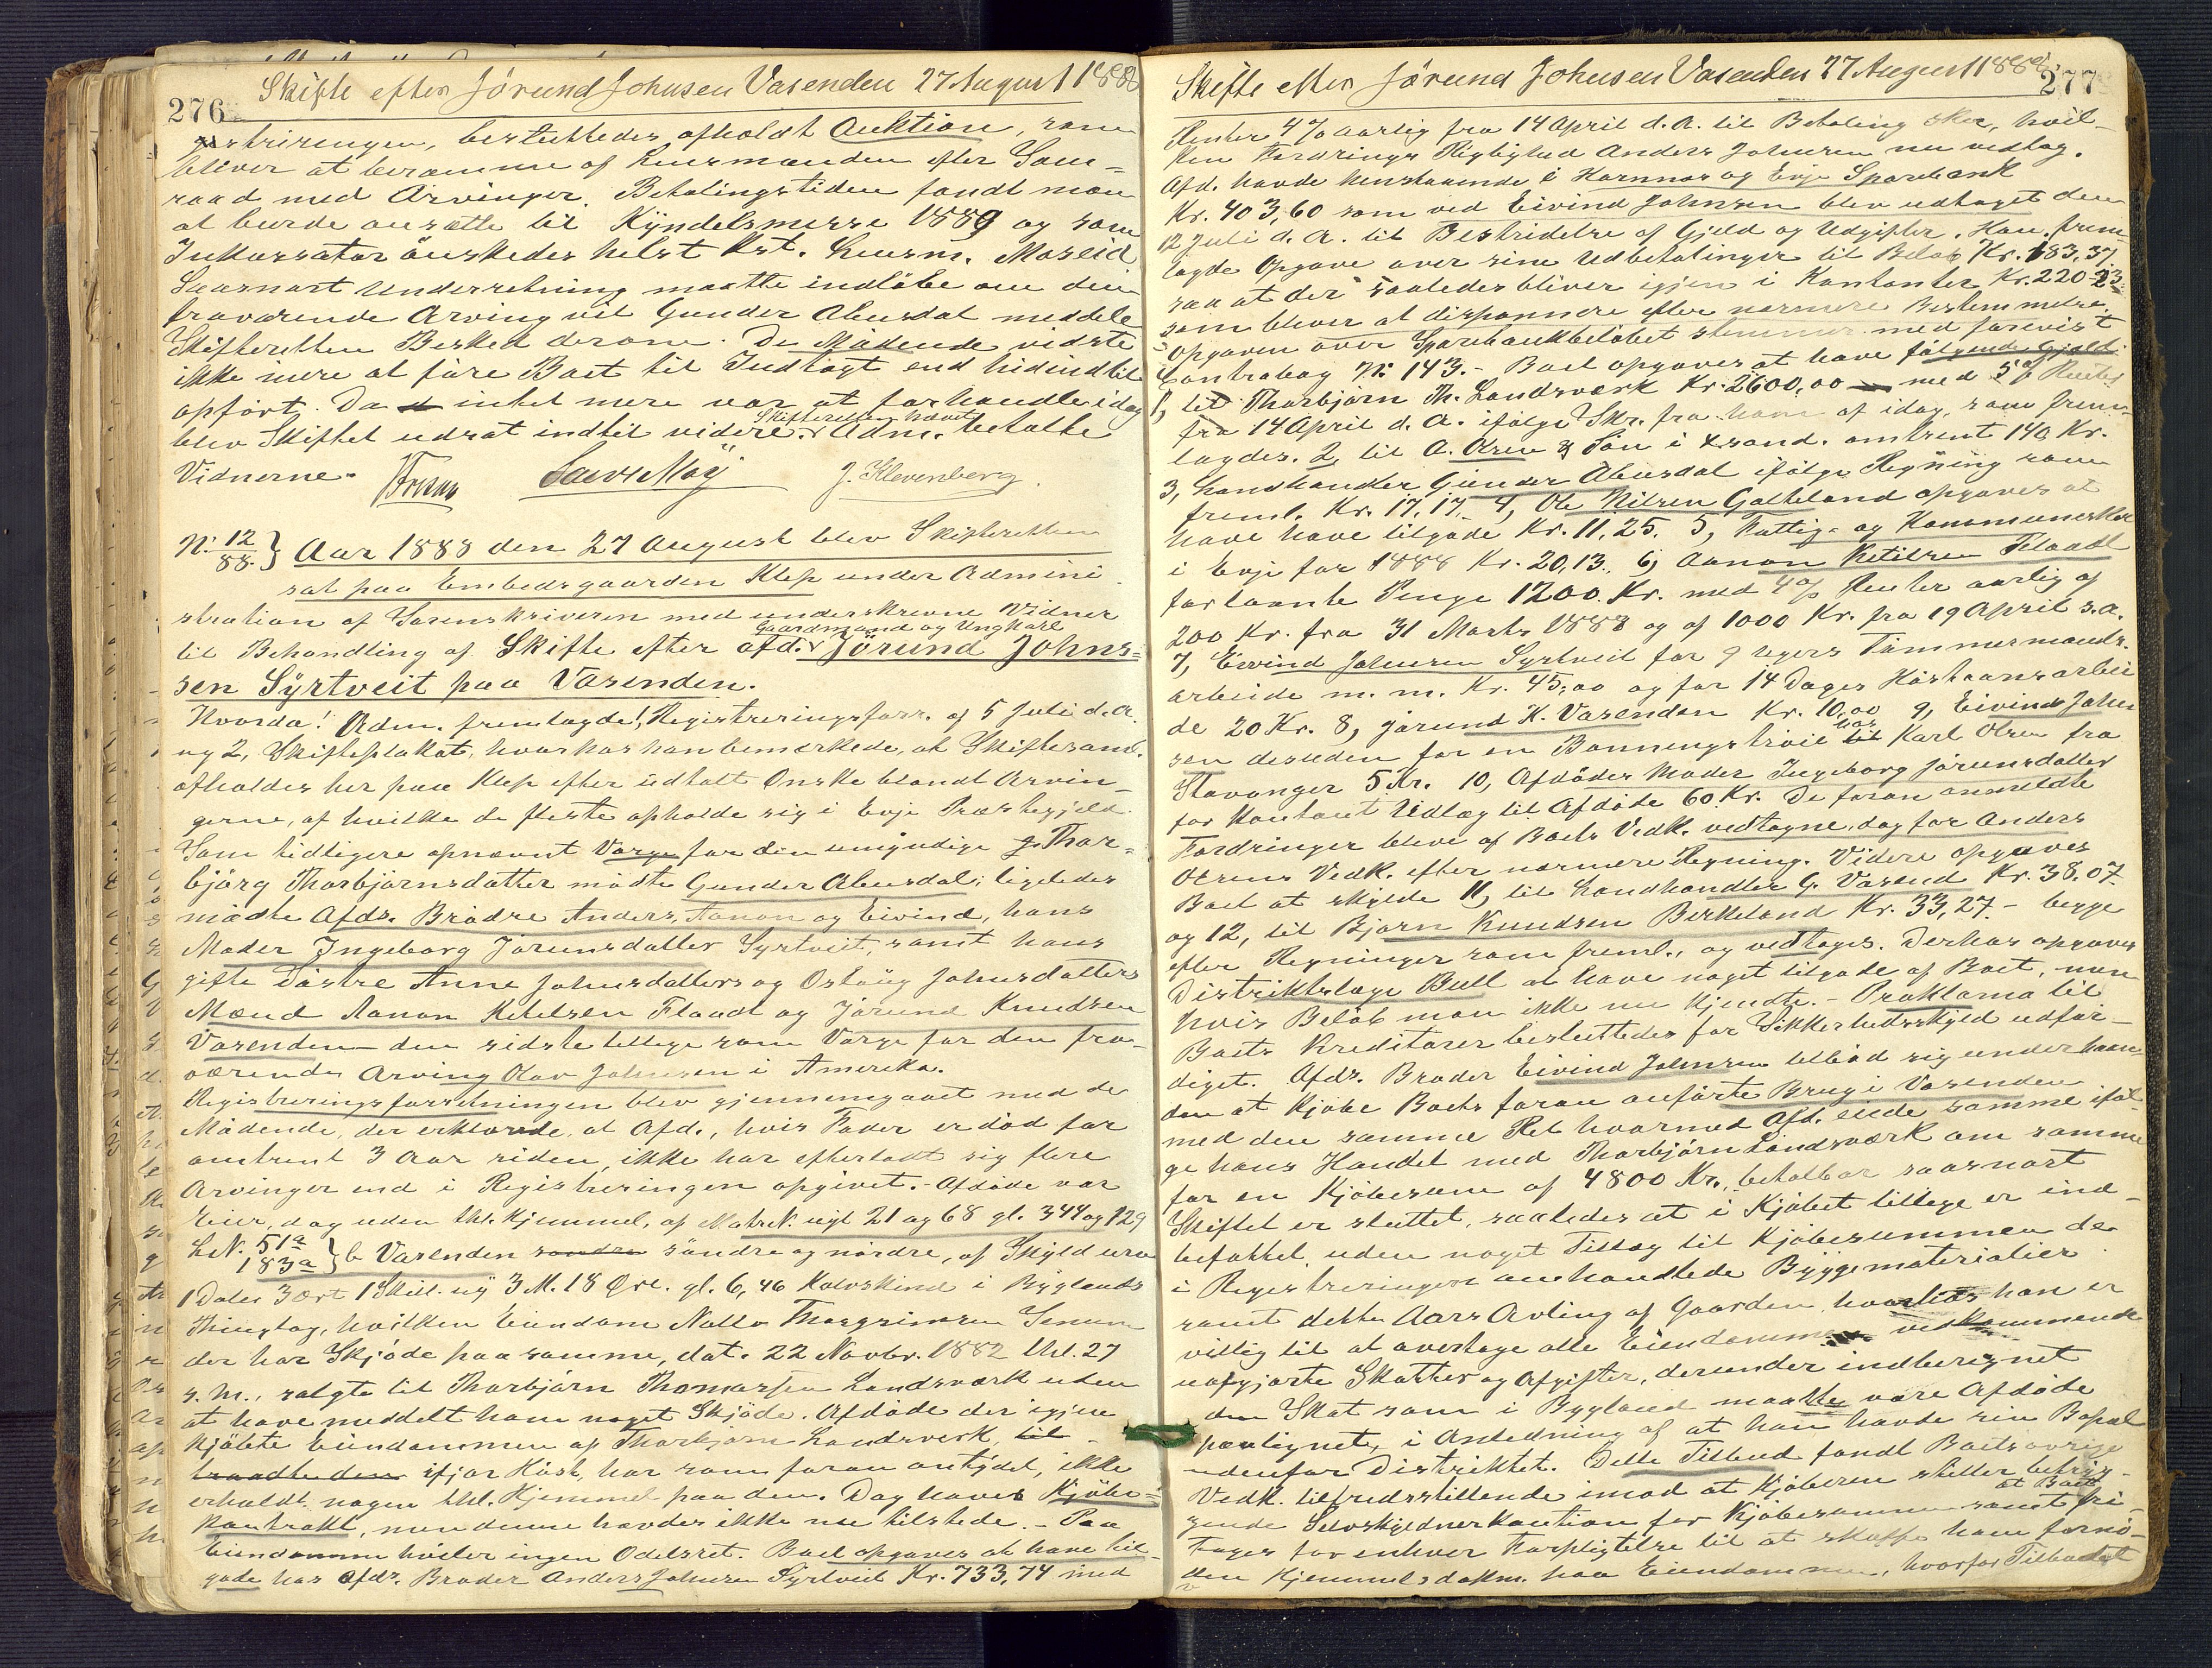 276
Skifte efter Jørund Johnsen Vasenden 27 August 1888
gistreringen, besluttedes afholdt Auktion, som
bliver at beramme af Lensmanden efter Sam=
raad med Arvinger. Betalingstiden fandt man
at burde ansætte til Kyndelsmesse 1889 og som
Inkassator önskedes helst Kst. Lensm. Moseid
Saasnart Underretning maatte indlöbe om den
fraværende Arving vil Gunder Abusdal meddele
Skifteretten Besked derom. De Mödende vidste
ikke mere at före Boet til Indtægt end hidindtil
opfört. Da intet mere var at forhandle idag
blev Skiftet udsat indtil videre. Skifteretten hævet Adm. betalte
Vidnerne.
J. Klevenberg.
N: 12/88 } Aar 1888 den 27 August blev Skifteretten
sat paa Embedsgaarden Klep under Admini
stration af Sorenskriveren med underskrevne Vidner
til Behandling af Skifte efter afd. Gaardmand og Ungkarl Jörund Johns=
sen Syrtveit paa Vasenden.
Hvorda! Adm. fremlagde 1, Registreringsforr. af 5 Juli d. A.
og 2, Skifteplakat, hvorhos han bemærkede, at Skiftesaml.
afholdes her paa Klep efter udtalt Önske blandt Arvin-
gerne, af hvilke de fleste opholde sig i Evje Præstegjeld.
Som tidligere opnævnt Værge for den umyndige Thor=
björg Thorbjörnsdatter mödte Gunder Abusdal; ligeledes
mödte Afds. Brödre Anders, Aanon og Eivind, hans
Moder Ingeborg Jörunsdatter Syrtveit, samt hans
gifte Söstre Anne Johnsdatters og Oslaug Johnsdatters
Mænd Aanon Ketelsen Flaadt og Jörund Knudsen
Vasenden - den sidste tillige som Værge for den fra-
værende Arving Olav Johnsen i Amerika.
Registreringsforretningen blev gjennemgaaet med de
Mödende, der erklærede, at Afd., hvis Fader er död for
omtrent 3 Aar siden, ikke har efterladt sig flere
Arvinger end i Registreringen opgivet. - Afdöde var
Eier, dog uden thl. Hjemmel, af Matr. N. nyt 21 og 68 gl. 344 og 129
L.N. 51a 183a } b Vasenden söndre og nördre, af Skyld uren
1 Daler 3 ort 1 Skill. ny 3 M. 18 Öre. gl. 6,46 Kalvskind i Byglands
Thinglag, hvilken Eiendom Nalle Thorgrimsen Senum
der har Skjöde paa samme, dat. 22 Novbr. 1882 thl. 27
s. M., solgte til Thorbjörn Thomassen Landsværk uden
at have meddelt ham noget Skjöde. Afdöde der igjen
kjöbte Eiendommen af Thorbjörn Landsverk, til
ifjor Höst, har som foran antydet, ikke
erholdt nogen thl. Hjemmel paa den. Dog haves Kjöbe=
kontrakt, men denne havdes ikke nu tilstede. - Paa
Eiendommen hviler ingen Odelsret. Boet opgaves at have til-
gode hos Afds. Broder Anders Johnsen Syrtveit Kr. 733,74 med
Skifte efter Jörund Johnsen Vasenden 27 August 1888
277
Renter 4% aarlig fra 14 April d. A. til Betaling sker, hvil-
ken Fordrings Rigtighed Anders Johnsen nu vedtog.
Afd. havde henstaaende i Hornnes og Evje Sparebank
Kr. 403,60 som ved Eivind Johnsen blev udtaget den
12 Juli d. A. til Bestridelse af Gjeld og Udgifter. Han frem-
lagde Opgave over sine Udbetalinger til Beløb Kr. 183,37.
saa at der saaledes bliver igjen i Kontanter Kr. 220-23
som bliver at disponnere efter nærmere Bestemmelse.
Opgaven over Sparebankbeløbet stemmer med forevist
Contrabog N: 143. - Boet opgaves at have følgende Gjeld
1, til Thorbjørn Th. Landsværk Kr. 2600,00 med 5% Renter
fra 14 April d. A. ifølge Skr. fra ham af idag, som frem-
lagdes. 2, til A. Olsen & Søn i Xsand. omtrent 140 Kr.
3, Landhandler Gunder Abusdal ifølge Regning som
freml. Kr. 17,17. 4, Ole Nilsen Galteland opgaves at
have have tilgode Kr. 11,25. 5, Fattig- og Kommuneskat
i Evje for 1888 Kr. 20,13. 6, Aanon Ketilsen Flaadt
forlaante Penge 1200 Kr. med 4% Renter aarlig af
200 Kr. fra 31 Marts 1888 og af 1000 Kr. fra 19 April s. A.
7, Eivind Johnsen Syrtveit for 9 Ugers Tømmermands-
arbeide m. m. Kr. 45,00 og for 14 Dages Høstaansarbei
de 20 Kr. 8, Jørund K. Vasenden Kr. 10,00 9, Eivind John
sen desuden for en Bonningströie hos Karl Olsen fra
Stavanger 5 Kr. 10, Afdødes Moder Ingeborg Jørunsdatter
for Kontant Udlæg til Afdøde 60 Kr. De foran anmeldte
Fordringer bleve af Boets Vedk. vedtagne, dog for Anders
Olsens Vedk. efter nærmere Regning. Videre opgaves
Boet at skylde 11, til Landhandler G. Vasend Kr. 38.07
og 12, til Bjørn Knudsen Birkeland Kr. 33,27 - begge
efter Regninger som freml., og vedtoges. Derhos opgaves
Distriktslæge Bull at have noget tilgode af Boet, men
hvis Beløb man ikke nu kjendte. - Proklama til
Boets Kreditorer besluttedes for Sikkerhedsskyld udfær-
diget. Afds. Broder Eivind Johnsen tilbød sig under haan
den at kjøbe Boets foran anførte Brug i Vasenden
med den samme Ret hvormed Afd. eiede samme iføl-
ge hans Handel med Thorbjørn Landsværk om samme
for en Kjøbesum af 4800 Kr., betalbar saasnart
Skiftet er sluttet, saaledes at i Kjøbet tillige er ind-
befattet uden noget Tillæg til Kjøbesummen de
i Registreringen omhandlede Byggematerialier
samt dette Aars Avling af Gaarden, hvorhos han er
villig til at overtage alle Eiendommen vedkommende
uafgjorte Skatter og Afgifter, derunder indberegnet
den Skat som i Bygland maatte være Afdøde
paalignet, i Anledning af at han havde sin Bopæl
udenfor Distriktet. Dette Tilbud fandt Boets øvrige
Vedk. tilfredsstillende imod at Kjøberen stiller betryg-
gende Selvskyldnerkaution for Kjøbesummen samt at Boet fri-
tages for enhver Forpligtelse til at skaffe ham fornö-
den Hjemmelsdokm. paa Eiendommen, hvorfor Tilbudet